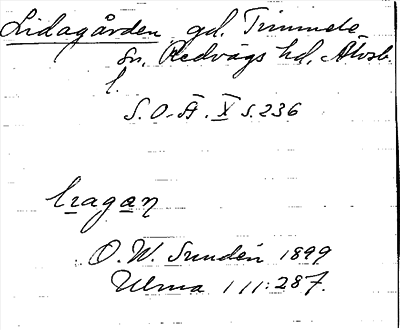 Lidagården gd. Timmele
sn, Redvägs hd, Älvsb.
l.
S.O.Ä. X s. 236
lɩagaŋ
O. W. Sundén 1899
Ulma 111:287.